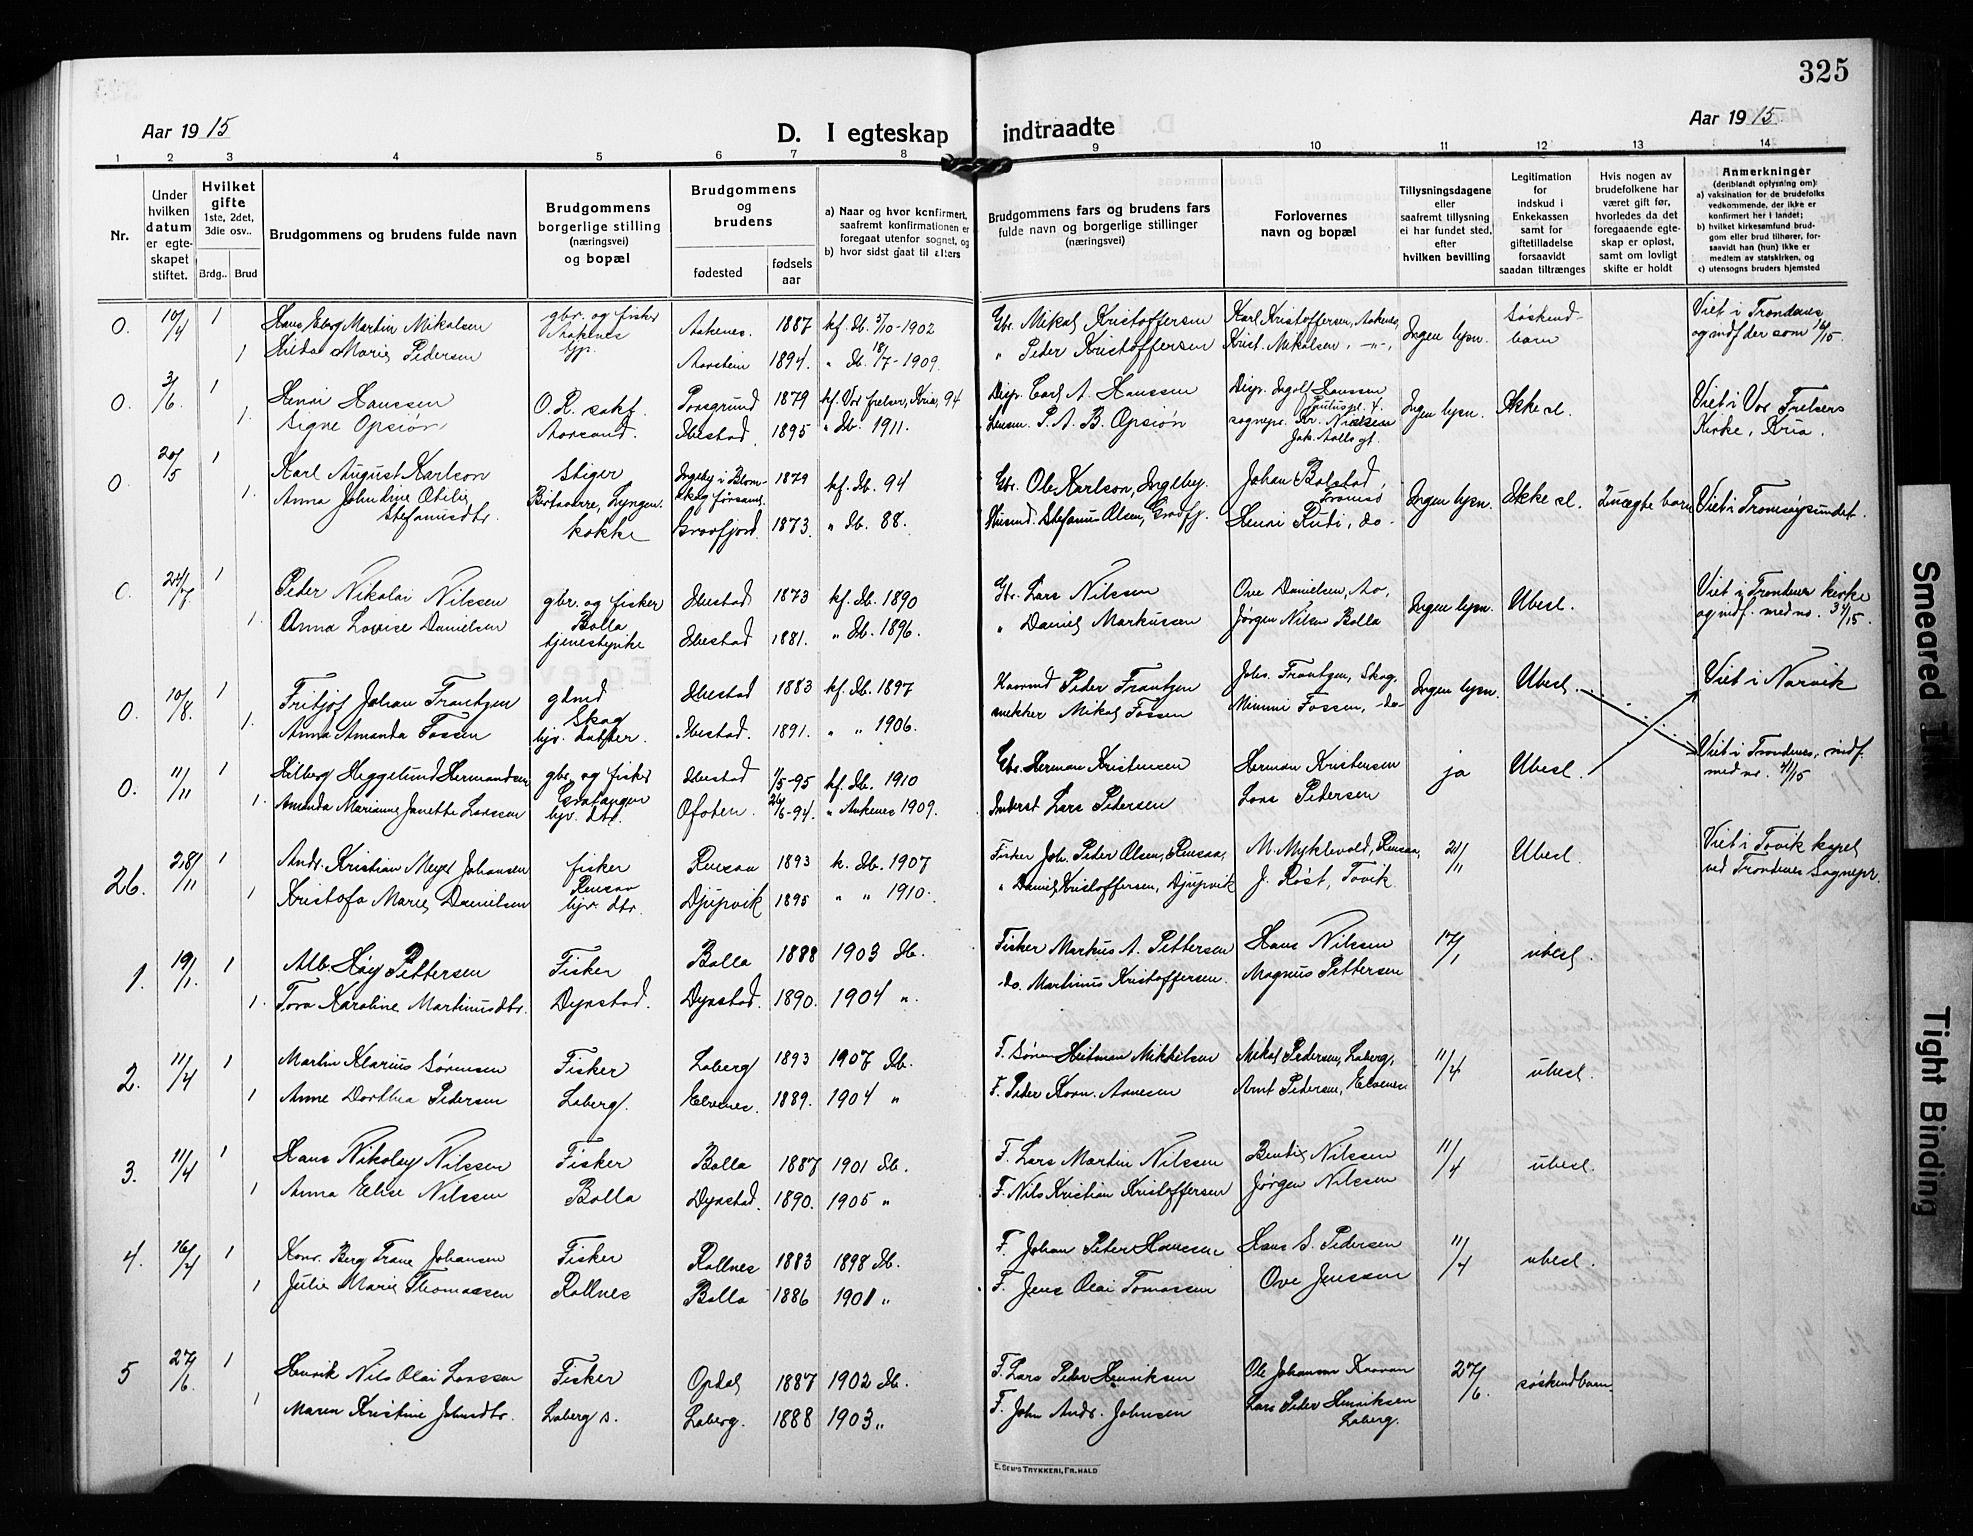 325
Aar 1915
D. I egteskap indtraadte
Aar 1915.
1 2 3 4 5 6 7 8 9 10 11 12 13 14
Nr.
Under hvilken datum er egteskapet stiftet.
Hvilket gifte
1ste, 2det, 3die osv..
Brdg.. Brud
Brudgommens og brudens fulde navn
Brudgommens borgerlige stilling (næringsvei) og bopæl
Brudgommens og brudens
fødested
fødsels aar
a) Naar og hvor konfirmert, saafremt konfirmationen er foregaat utenfor sognet, og
b) hvor sidst gaat til alters
Brudgommens fars og brudens fars fulde navn og borgerlige stillinger (næringsvei)
Forlovernes navn og bopæl
Tillysningsdagene eller saafremt tillysning ei har fundet sted, efter hvilken bevilling
Legitimation for indskud i Enkekassen samt for giftetilladelse forsaavidt saadan tiltrænges
Hvis nogen av brudefolkene har været gift før, hvorledes da det foregaaende egteskap er opløst, samt om lovligt skifte er holdt
Anmerkninger
(deriblandt oplysning om):
a) vaksination for de brudefolks vedkommende, der ikke er konfirmert her i landet;
b) hvilket kirkesamfund brudgom eller brud tilhører, forsaavidt han (hun) ikke er medlem av statskirken, og
c) utensogns bruders hjemsted
0. 10/4 1 Hans Martin Mikalsen gbr. og fisker Aakenes. 1887 kf. Ib. 5/10-1902 Gbr. Mikal Kristoffersen Karl Kristoffersen, Aakenes, Ingen lysn. Søskendbarn Viet i Trondenes
1 Hilda Marie Pedersen Aarstein 1894. " Ib. 18/7-1909. " Peder Kristoffersen Krist. Mikalsen, -"-, og indf der som 16/15.
0. 3/6 1 Henri Hanssen O.R. sakf. Porsgrund 1879 kf. Vor frelser, Kria, 94 Disp. Carl A. Hanssen Disp. Ingolf Hanssen Ingen lysn. Ikke sl. Viet i Vor Frelsers
1. Signe Opsiøn Aarsand. Ibestad. 1895 " Ib. 1911. Lensm. P. A. B. Opsiøn sognepr. Kr. Nielsen Kirke, Kria.
0. 20/5 1 Karl August Karlson Stiger Ingeby i Blomskog forsaml. 1879 kf. Ib. 94 Gbr. Ole Karlson, Ingeby. Johan Bolstad, Tromsø Ingen lysn. Ikke sl. 2 uægte barn Viet i Tromsøysundet.
1. Anna Johndine Otilie Stefanusdtr. Birtavarre, Lyngen. kokke Gravfjord. 1873. " Ib. 88. Husmd. Stefanus Olsen, Gravfj. Henri Rudi, do-
0. 24/7. 1 Peder Nikolai Nilssen gbr. og fisker Ibestad 1873 kf. Ib. 1890 Gbr. Lars Nilssen Ove Danielsen, Aa, Ingen lysn. Ubesl. Viet i Trondenes kirke
1. Anna Lovise Danielsen Bolla tjenestpike Ibestad 1881. " Ib. 1896. " Daniel Markussen Jørgen Nilsen Bolla og indf. med no. 34/15.
0. 10/8. 1 Fritjof Johan Frantzen gbmd Skog Ibestad 1883 kf. Ib. 1897 Kaarmd Peder Frantzen Johs. Frantzen, Skog, Ingen lysn. Ubesl. Viet i Narvik
1. Anna Amanda Fossen hjv. datter. Ibestad. 1891. " " 1906. snekker Mikal Fossen Mimmi Fossen, -do-
0. 11/11 1 Hilberg Heggelund Hermandsen gbr. og fisker Gratangen Ibestad 1/5-95 kf. Ib. 1910 Gbr. Herman Kristensen Herman Kristensen ja Ubesl. Viet i Trondenes, indf.
1. Amanda Marianne Janette Larssen hjv. dtr. Ofoten. 26/6-94. " Ankenes 1909. Inderst Lars Pedersen Lars Pedersen med nr. 41/15
26. 28/11 1 Andr. Kristian Meyer Johansen fisker Rensaa Rensaa 1893 k. Ib. 1907 Fisker Joh. Peder Olsen, Rensaa, M. Myklevold, Rensaa, 21/11 Ubesl. Viet i Tovik kapel
1 Kristofa Marie Danielsen hjv. dtr. Djupvik 1895 " " 1910. " Daniel Kristoffersen, Djupvik J. Røst, Tovik. ved Trondenes Sognepr.
1. 19/1. 1 Alb. Høy Pettersen Fisker Bolla 1888 1903 Ib. Fisker Markus A. Pettersen Hans Nilssen 17/1 ubesl.
1. Tora Karoline Martinusdtr. Dyrstad. Dyrstad. 1890. 1904 ". do. Martinus Kristoffersen. Magnus Pettersen
2. 11/4 1 Martin Klarius Sørensen Fisker Laberg 1893 1907 Ib. F. Søren Heitman Mikkelsen Mikal Pedersen, Laberg, 11/4 ubesl.
1 Anne Dorthea Pedersen Laberg. Elvenes. 1889. 1904 " F. Peder Korn. Arnesen Arnt Pedersen, Elvenes
3. 11/4 1 Hans Nikolay Nilssen Fisker Bolla 1887 1901 Ib. F. Lars Martin Nilssen Bendix Nilssen 11/4 ubesl.
1 Anna Elise Nilssen Bolla Dyrstad. 1890. 1905 " F. Nils Kristian Kristoffersen Jørgen Nilssen
4. 16/4 1 Konr. Berg Trane Johansen Fisker Rollnes 1883 1898 Ib. F. Johan Peter Hanssen Hans S. Pedersen 11/4 ubesl.
1 Julie Marie Thomassen Rollnes Bolla 1886 1901 " F. Jens Olai Tomassen Ove Jenssen
5 27/6. 1 Henrik Nils Olai Larssen Fisker Opdal 1887 1902 Ib. F. Lars Peder Henriksen Ole Johansen Kraavan 27/6. søskendbarn.
1 Maren Kristine Johnsdtr. Laberg s. Laberg. 1888 1903 " F. John Andr. Johnsen Lars Peder Henriksen Laberg.
E. SEM'S TRYKKERI, FR.HALD
Smeared Ink
Tight Binding